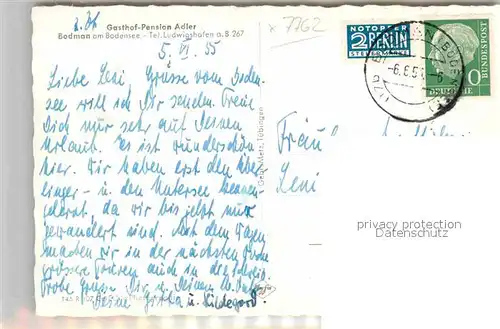 Gasthof-Pension Adler
Bodman am Bodensee - Tel. Ludwigshafen a. B 267
7762
5. VI. 55
Liebe Leni, Grüsse vom Boden-
see will ich Dir senden. Freue
Dich nur sehr auf Deinen
Urlaub. Es ist wunderschön
hier. Wir haben erst den Über-
linger- u. den Untersee kennen-
gelernt, da wir bis jetzt nur
gewandert sind. Mit dem
machen wir in der nächsten Woche
grössere Touren auch in die Schweiz.
Frohe Grüsse Dir u. Deinen
Deine u. Hildegard
Gebr. Metz, Tübingen
NOTOPFER
2 BERLIN
STEUERMARKE
DEUTSCHE
BUNDESPOST
10
-6.6.55
Fräu
Leni
privacy protection
Datenschutz